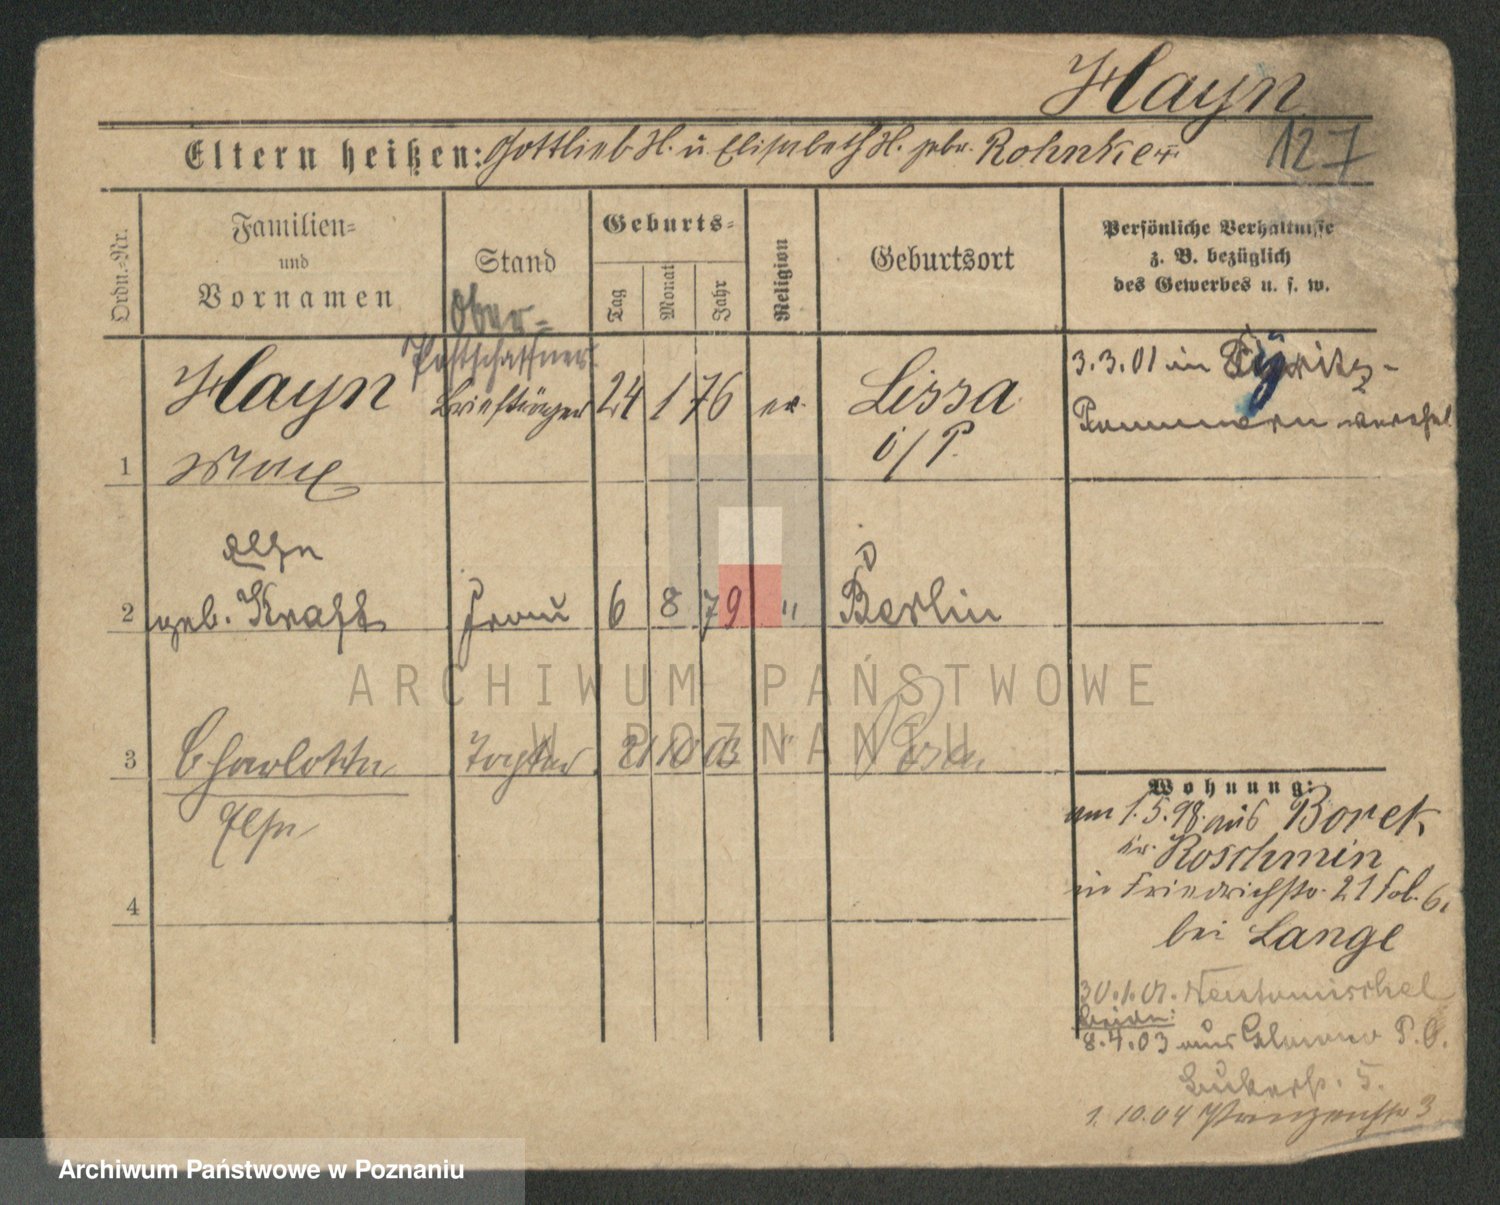 Hayn
Eltern heißen: Gottlieb H. u. Elisabeth H. gebr. Rohnke
127
Ordn.-Nr.
Familien-
und
Vornamen
Stand
Geburts-
Tag
Monat
Jahr
Religion
Geburtsort
Persönliche Verhältnisse
z. B. bezüglich
des Gewerbes u. s. w.
Ober-
Postschaffner
Hayn Briefträger 24 1 76 ev. Lissa
i/P.
1 Max
3.3.01 in Pyritz-
Pommern
2 geb. Kraft Frau 6 8 79 " Berlin
3 Charlotte Tochter 21 10 03 " Posen
Else
4
Wohnung:
am 1.5.98. aus Borek
Kr. Koschmin
in Friedrichstr. 21
bei Lange
30.1.01. Neutomischel
8.4.03 aus P.
5.
1.10.04 3
ARCHIWUM PAŃSTWOWE
W POZNANIU
Archiwum Państwowe w Poznaniu